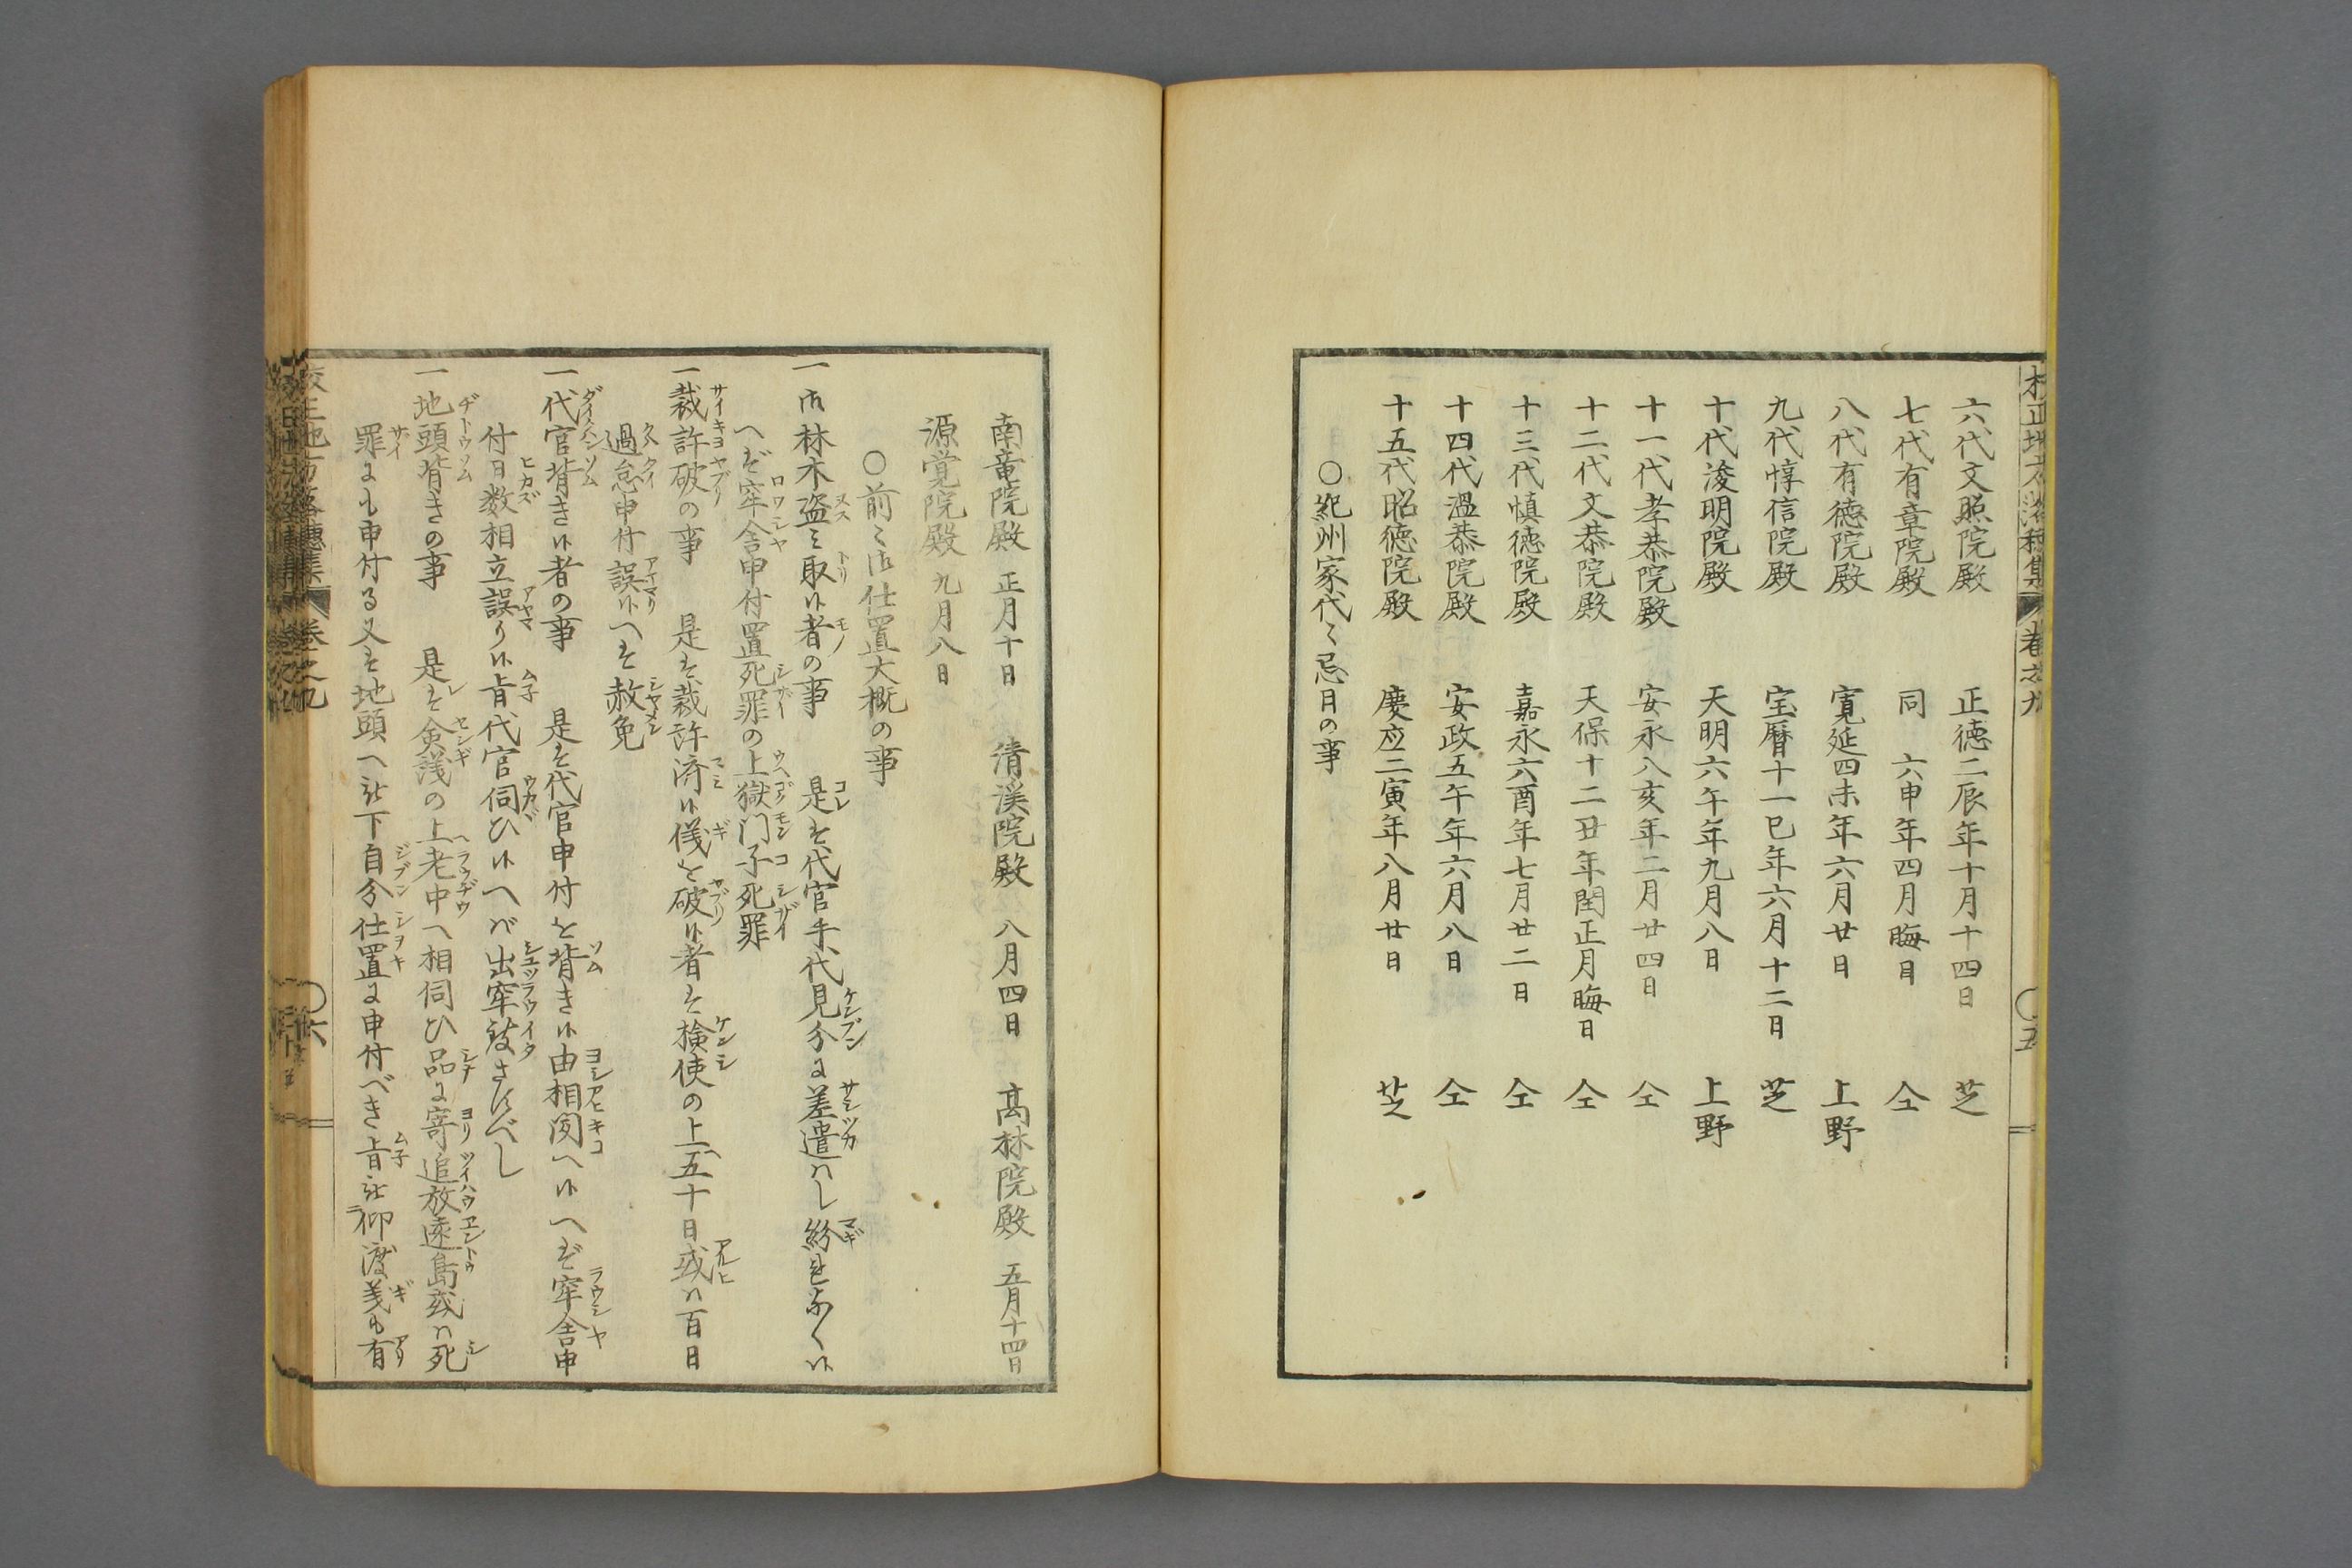 六代文照院殿　正徳二辰年十月十四日　芝
七代有章院殿　同　六申年四月晦日　仝
八代有徳院殿　寛延四未年六月廿日　上野
九代惇信院殿　宝暦十一巳年六月十二日　芝
十代浚明院殿　天明六午年九月八日　上野
十一代孝恭院殿　安永八亥年二月廿四日　仝
十二代文恭院殿　天保十二丑年閏正月晦日　仝
十三代慎徳院殿　嘉永六酉年七月廿二日　仝
十四代温恭院殿　安政五午年六月八日　仝
十五代昭徳院殿　慶応二寅年八月廿日　芝
〇紀州家代〻忌日の事
南竜院殿　正月十日　清渓院殿　八月四日　高林院殿　五月十四日
源覚院殿　九月八日
〇前〻御仕置大概の事
一御林木盗ミ取候者の事　是ハ代官手代見分に差遣ハし紛れなく候
へバ牢舎申付置死罪の上獄門子死罪
一裁許破の事　是ハ裁許済候儀を破候者ハ検使の上五十日或ハ百日
過怠申付誤候へハ赦免
一代官背き候者の事　是ハ代官申付を背き候由相聞へ候へバ牢舎申
付日数相立誤り候旨代官伺ひ候へバ出牢致さすべし
一地頭背きの事　是ハ僉議の上老中へ相伺ひ品に寄追放遠島或ハ死
罪にも申付る又ハ地頭へ被下自分仕置に申付べき旨被仰渡義も有
校正地方落穂集　巻之九　〇六